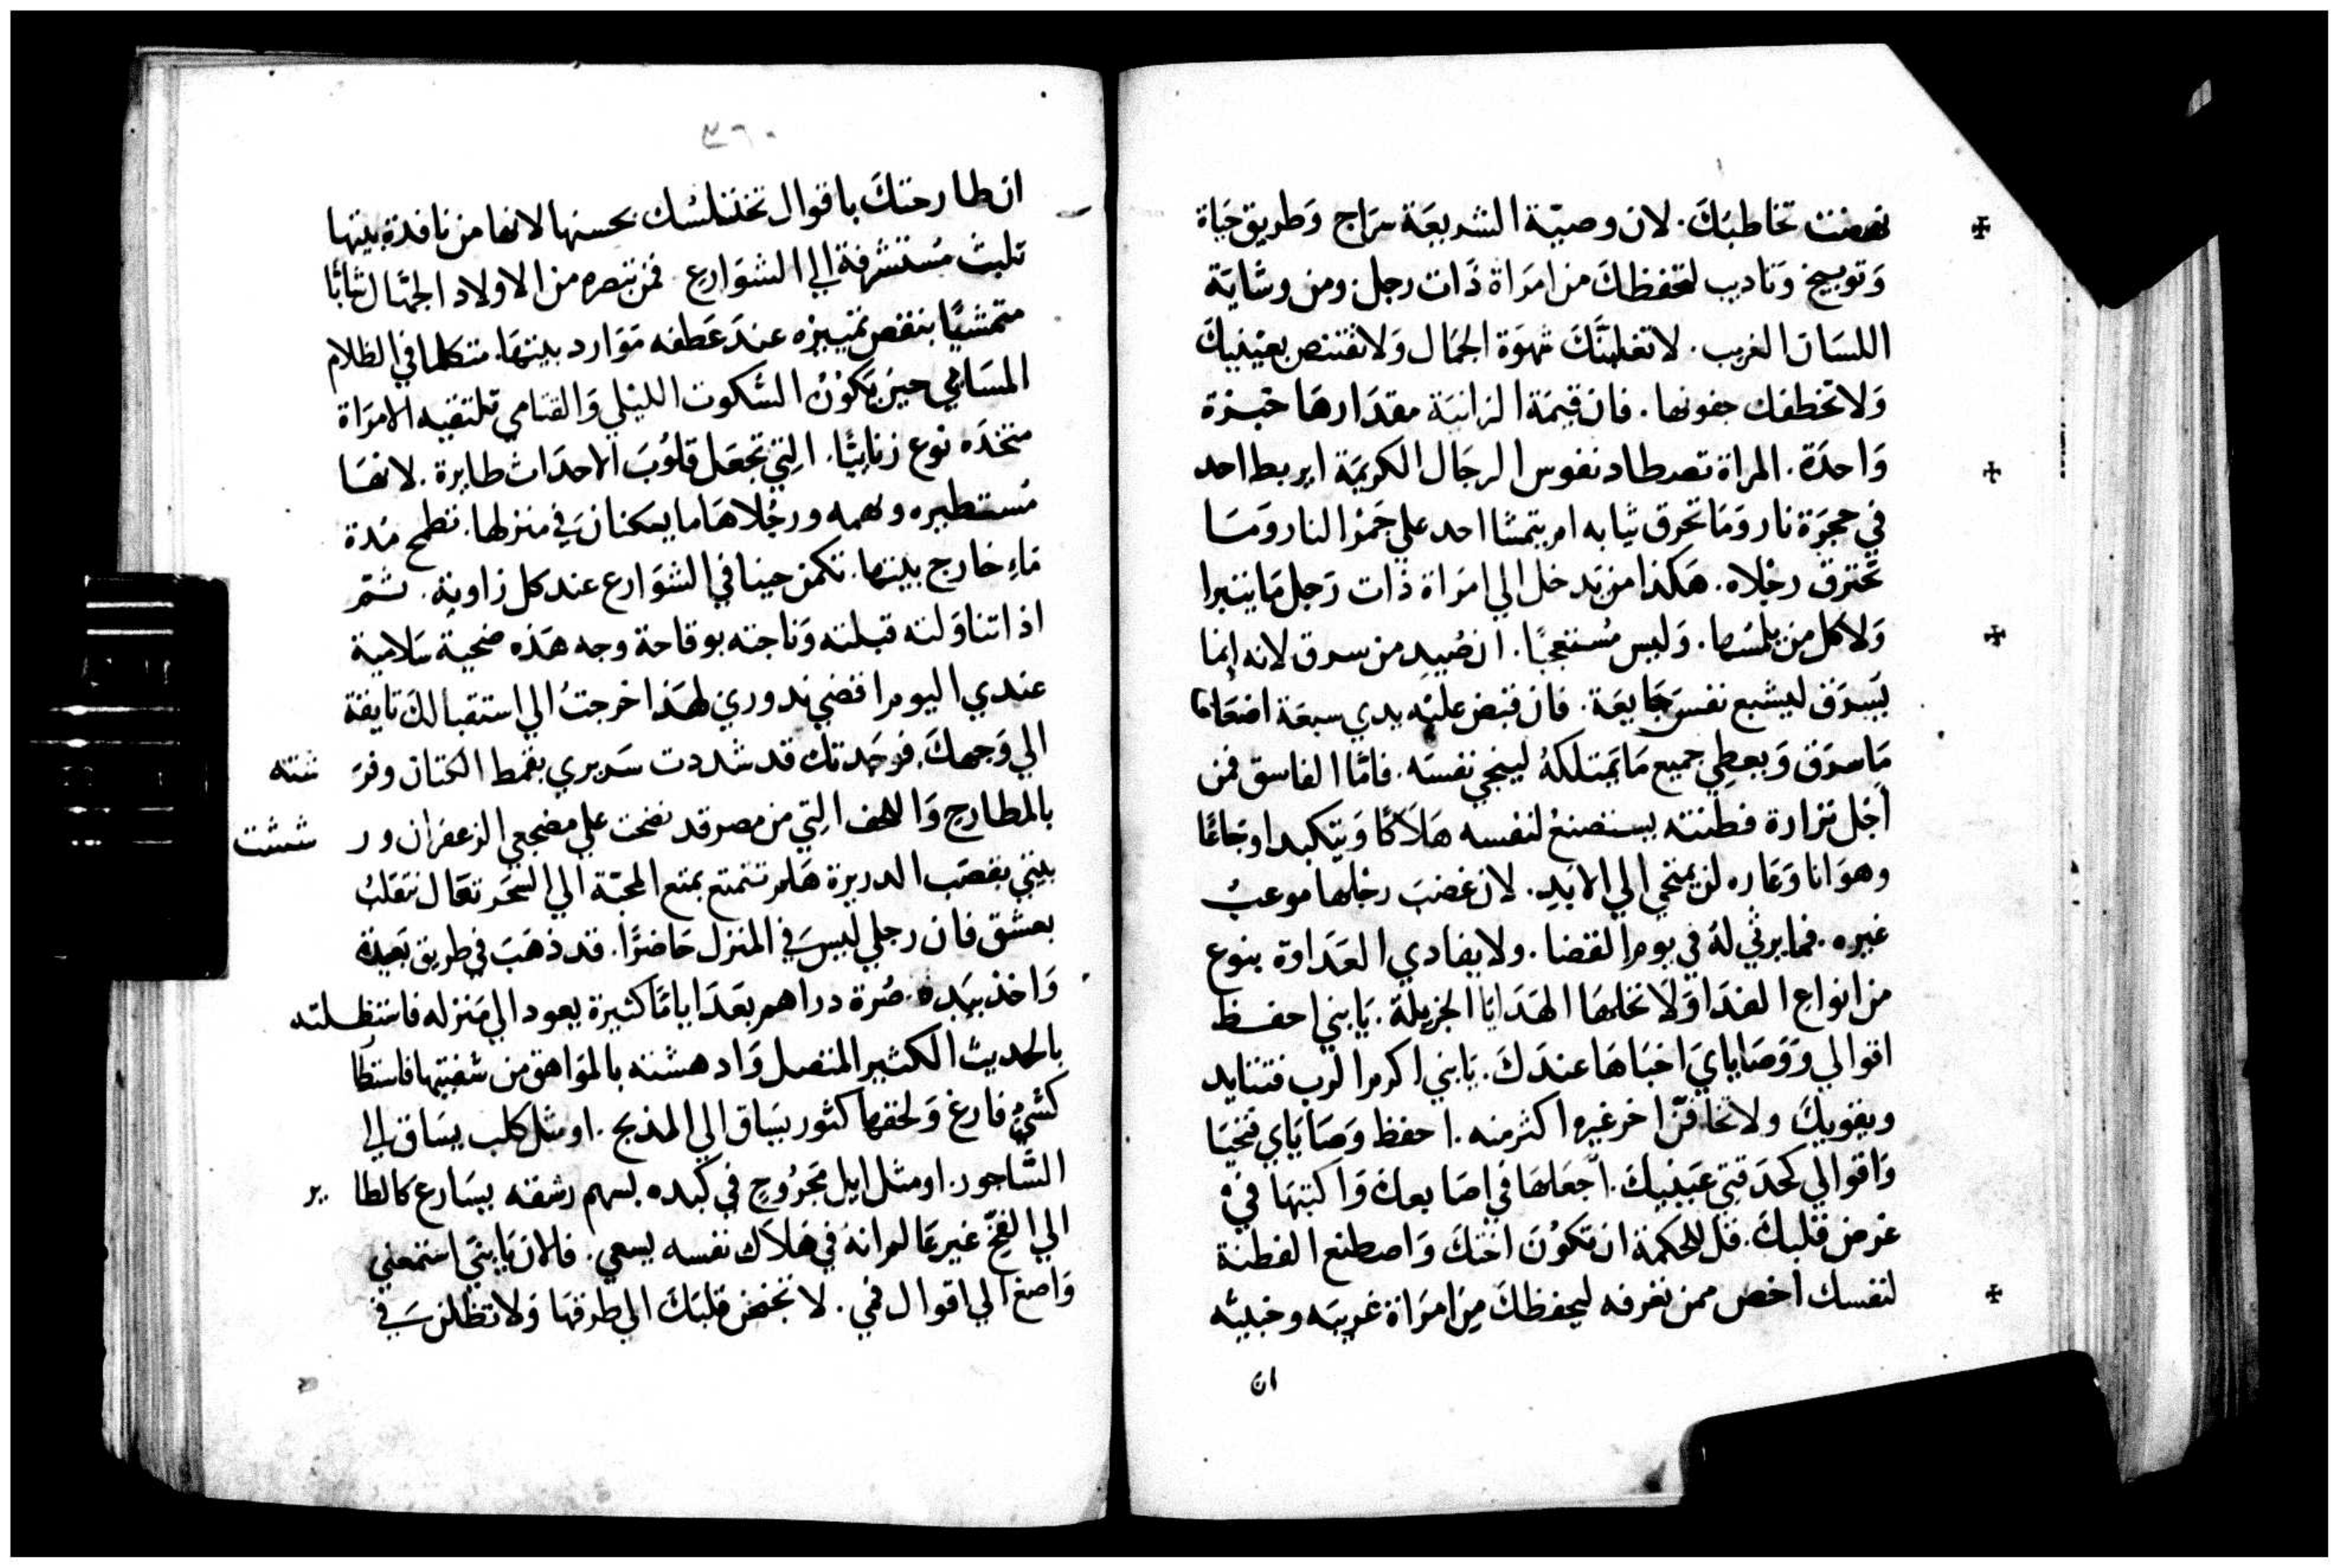 نهضت تخاطبَكَ. لان وصيّة الشريعَة سِرَاج وَطريق حَيَاة
وَتوبيخ وَتاديب لتحفظكَ من امرَاة ذَات رجل ومن وشَايَة
اللسَان الغريب. لا تغلبنَّكَ شهوَة الجمَال وَلا تقتنص بعَيْنيكَ
وَلا تخطفك جفونها. فان قيمَة الزانيَة مقدَارهَا خبزة
وَاحدَة. المراة تصطاد نفوس الرجَال الكريمَة ايربط احد
في حجرَة نار وَمَا تحرق ثيابه امر يتمشا احد علي جَمرْ النار وَمَا
تحترق رجْلاه. هَكذا من يَدخل الي امرَاة ذات رَجل مَا يتبرا
وَلا كل من يلمسُها. وَليس مُستعجبًا. ان صُيدِ من سرق لانه انما
يَسرَق ليشبع نفسَ جَايعَة. فان قبض عليْه يدي سبعَة اضعَاف
مَا سرَق وَيعطِي جميع مَا يَمتلكهُ لينجي نفسَه. فامَّا الفاسق فمن
اجْل نزارة فطنته يستصنعُ لنفسه هَلاَكًا وَيتكبد اوجَاعًا
وهوَانا وَعَاره لن يمتحي الي الابَدِ. لان غضبَ رجلها موعبُ
غيره. فما يرثي لهُ في يوم القضا. ولا يفادي العَدَاوة بنوع
من انواع الفدَا وَلاَ تحلهَا الهَدَايَا الجزيلة. يَا بني احفظ
اقوالي وَوَصَايايَ اخبَاهَا عندَكَ. يَا بني اكرم الرب فتتايد
ويقويكَ ولا تخافنّ اخر غيره اكثر منه. احفظ وَصَايَاي فتحيَا
وَاقوالي كحَدَقتي عَيَنيكَ. اجْعَلهَا في اصَابعك وَاكتبهَا في
عرض قلبكَ. قل للحكمة ان تكوُنَ اختكَ وَاصطنع الفطنة
لنفسك اخص ممن تعرفه ليحفظكَ مِن امرَاة غريبَه وخبيثه
ان
٣٦٠
ان طارحتكَ باقوال تختلسُك بحسنها لانها من نافدة بيتها
تلبث مُستشرفة الي الشوَارع فمن تبصره من الاولاد الجهَّال شَابًا
متمشيًا بنقص تمييزه عندَ عَطفه مَوَارد بيتهَا. متكلما في الظلام
المسَاي حين يَكوُن السُّكوت الليْلي وَالقتامي تلتقيه الامرَاة
متخذه نوع زنايًّا. التي تجعَل قلوُبَ الاحدَاث طايرة. لانهَا
مُستطيره ونهمه ورجْلاهَا ما يسكنان في منزلها. تطمح مُدة
مَاءِ خارج بيتها. تكمن حينا في الشوَارع عند كل زاوية. ثم
اذا تناوَلته قبلته وَناجته بوقاحة وجه هَذه ضحية سَلامية
عندي اليوم اقضي ندوري لهَذا خرجتُ الي استقبالكَ تايقة
الي وَجهكَ فوجَدتك قد شددت سَريري بقمط الكتان وفر شته
بالمطارح وَاللحف التي من مصر قد نضحت علي مضجعي الزعفران ور ششت
بيتي بقصَب الدريرة هَلم نتمتع بمتع المحبّة الي السَّحَر تعَال نتقلبُ
بعشق فان رجلي ليسَ في المنزل حَاضرًا. قد ذهَبَ في طريق بَعيدة
وَاخذ بيَده صُرة دراهم بعَدَ ايامًا كثيرة يعود الي مَنزله فاستظلته
بالحديث الكثير المتصل وَادهشته بالموَاهق من شفتيها فاستطا
كشيْ فارغ وَلحقها كثور يسَاق الي المذبح. او مثل كلب يسَاق الي
السَّاجور. او مثل ايل مَجرُوحٍ في كبده بسهم رشقه يسَارع كالطا ير
الي الفخّ غير عَالم انهُ في هَلاَك نفسه يسعي. فالان يَا بنيَّ استمعني
وَاصغ الي اقوال فمي. لا تخفض قلبَكَ الي طرقهَا وَلا تظلن في